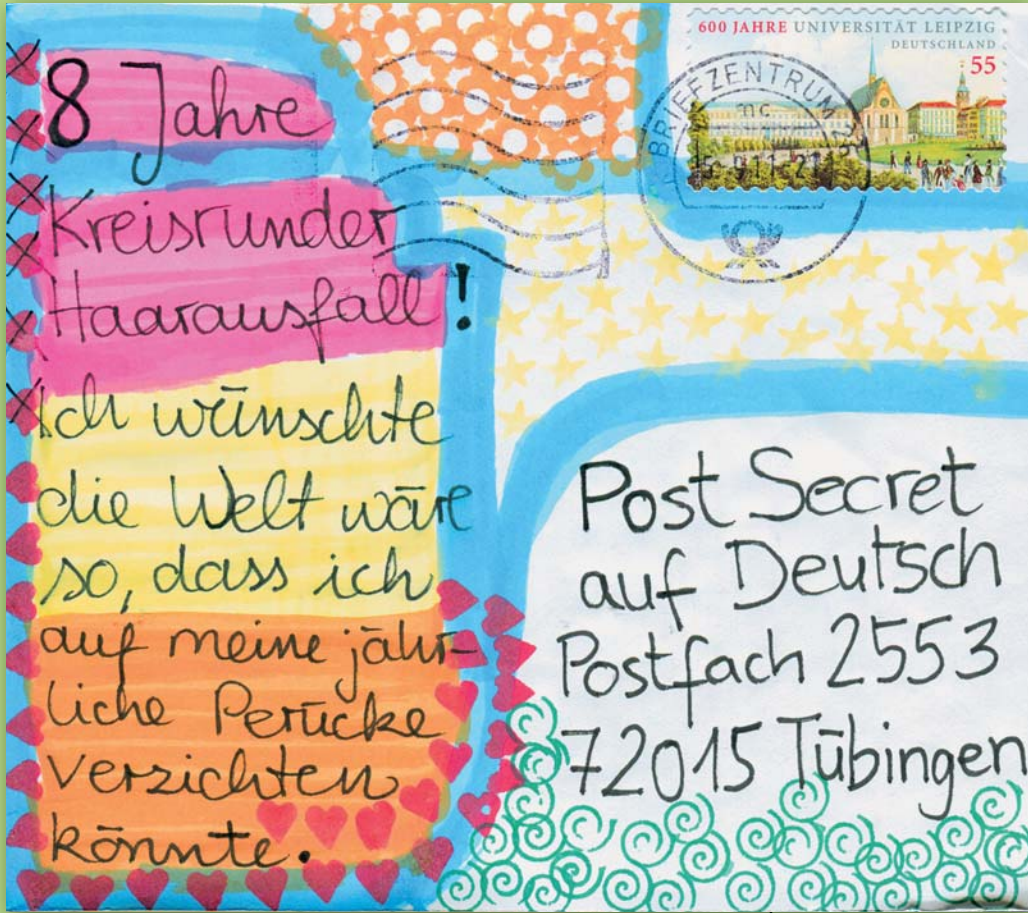 8 Jahre
Kreisrunder
Haarausfall!
Ich wünschte
die Welt wäre
so, dass ich
auf meine jähr-
liche Perücke
verzichten
könnte.
600 JAHRE UNIVERSITÄT LEIPZIG
DEUTSCHLAND
55
BRIEFZENTRUM
mc
Post Secret
auf Deutsch
Postfach 2553
72015 Tübingen